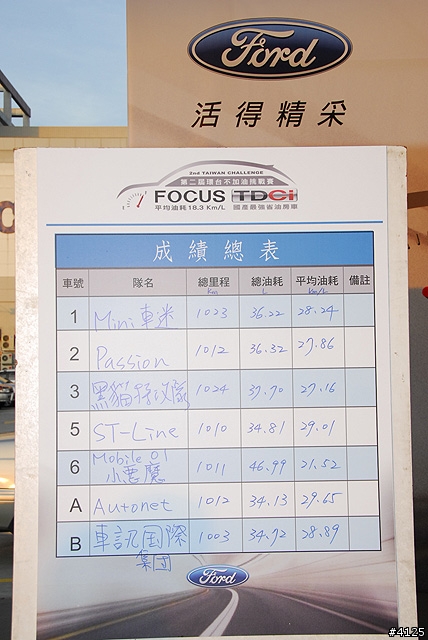 Ford
活得精采
2nd TAIWAN CHALLENGE
第二屆環台不加油挑戰賽
FOCUS TDCi
平均油耗18.3 Km/L 國產最強省油房車
成績總表
車號 隊名 總里程 總油耗 平均油耗 備註
Km L Km/L
1 Mini車迷 1023 36.22 28.24
2 Passion 1012 36.32 27.86
3 黑貓 1024 37.70 27.16
5 ST-Line 1010 34.81 29.01
6 Mobile 01 小惡魔 1011 46.99 21.52
A Autonet 1012 34.13 29.65
B 車訊国際 1003 34.72 28.89
集団
Ford
#4125